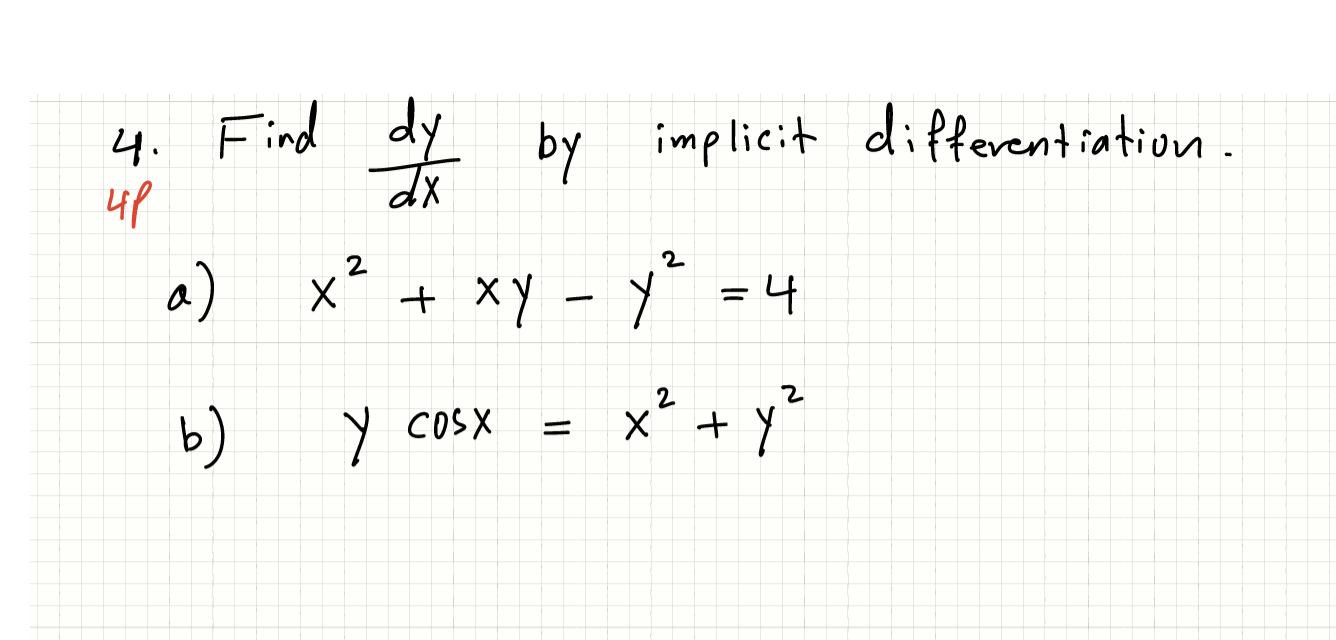 4. Find dy/dx by implicit differentiation.
4p
a) x² + xy - y² = 4
b) y cosx = x² + y²